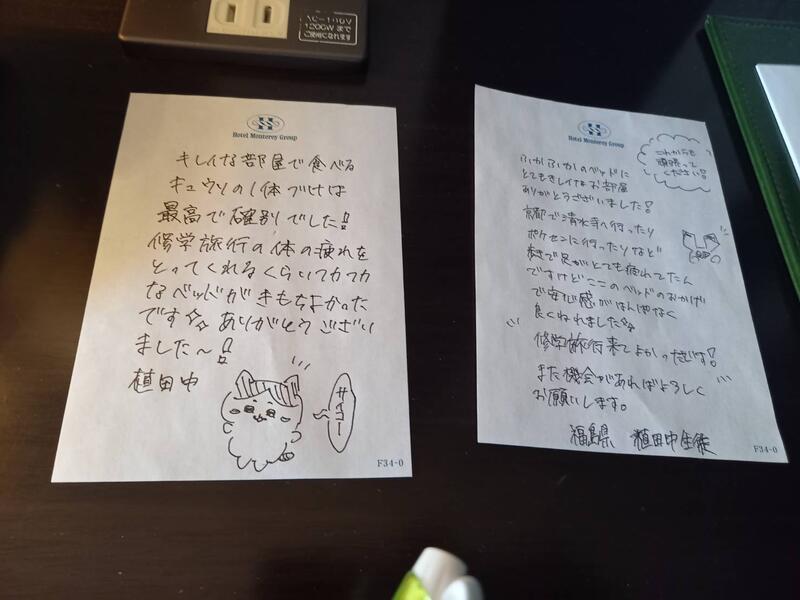 AC-110V
1200Wまで
ご使用になれます
Hotel Monterey Group
キレイな部屋で食べる
キュウリの1本づけは
最高で格別でした!!
修学旅行の体の疲れを
とってくれるくらいフカフカ
なベッドがきもちよかった
です ありがとうござい
ました〜!!
植田中
サイコー
F34-0
Hotel Monterey Group
これからも
頑張って
ください!
ふかふかのベッドに
とてもきれいなお部屋
ありがとうございました!
京都で清水寺へ行ったり
ポケセンに行ったりなど
で足がとても疲れてたん
ですけどここのベッドのおかげ
で安心感がはんぱなく
良くねれました
修学旅行来てよかったです!
また機会があればよろしく
お願いします。
福島県 植田中生徒
F34-0